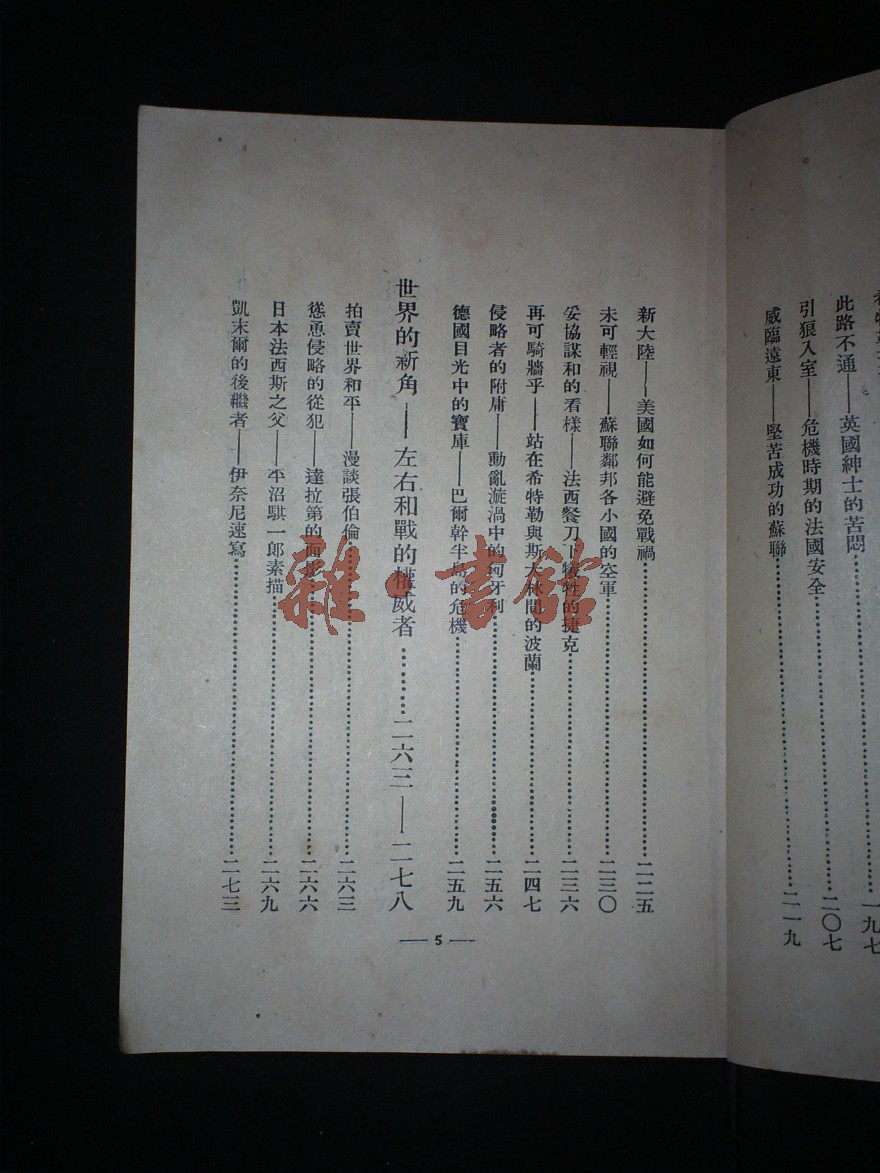 此路不通——英國紳士的苦悶……一九七
引狼入室——危機時期的法國安全……二〇七
威臨遠東——堅苦成功的蘇聯……二一九
新大陸——美國如何能避免戰禍……二二五
未可輕視——蘇聯鄰邦各小國的空軍……二三〇
妥協謀和的看樣——法西餐刀下犧牲的捷克……二三六
再可騎牆乎——站在希特勒與斯大林間的波蘭……二四七
侵略者的附庸——動亂漩渦中的匈牙利……二五六
德國目光中的寶庫——巴爾幹半島的危機……二五九
世界的新角——左右和戰的權威者……二六三——二七八
拍賣世界和平——漫談張伯倫……二六三
慫恿侵略的從犯——達拉第的面影……二六六
日本法西斯之父——平沼騏一郎素描……二六九
凱末爾的後繼者——伊奈尼速寫……二七三
—5—
雜·書館